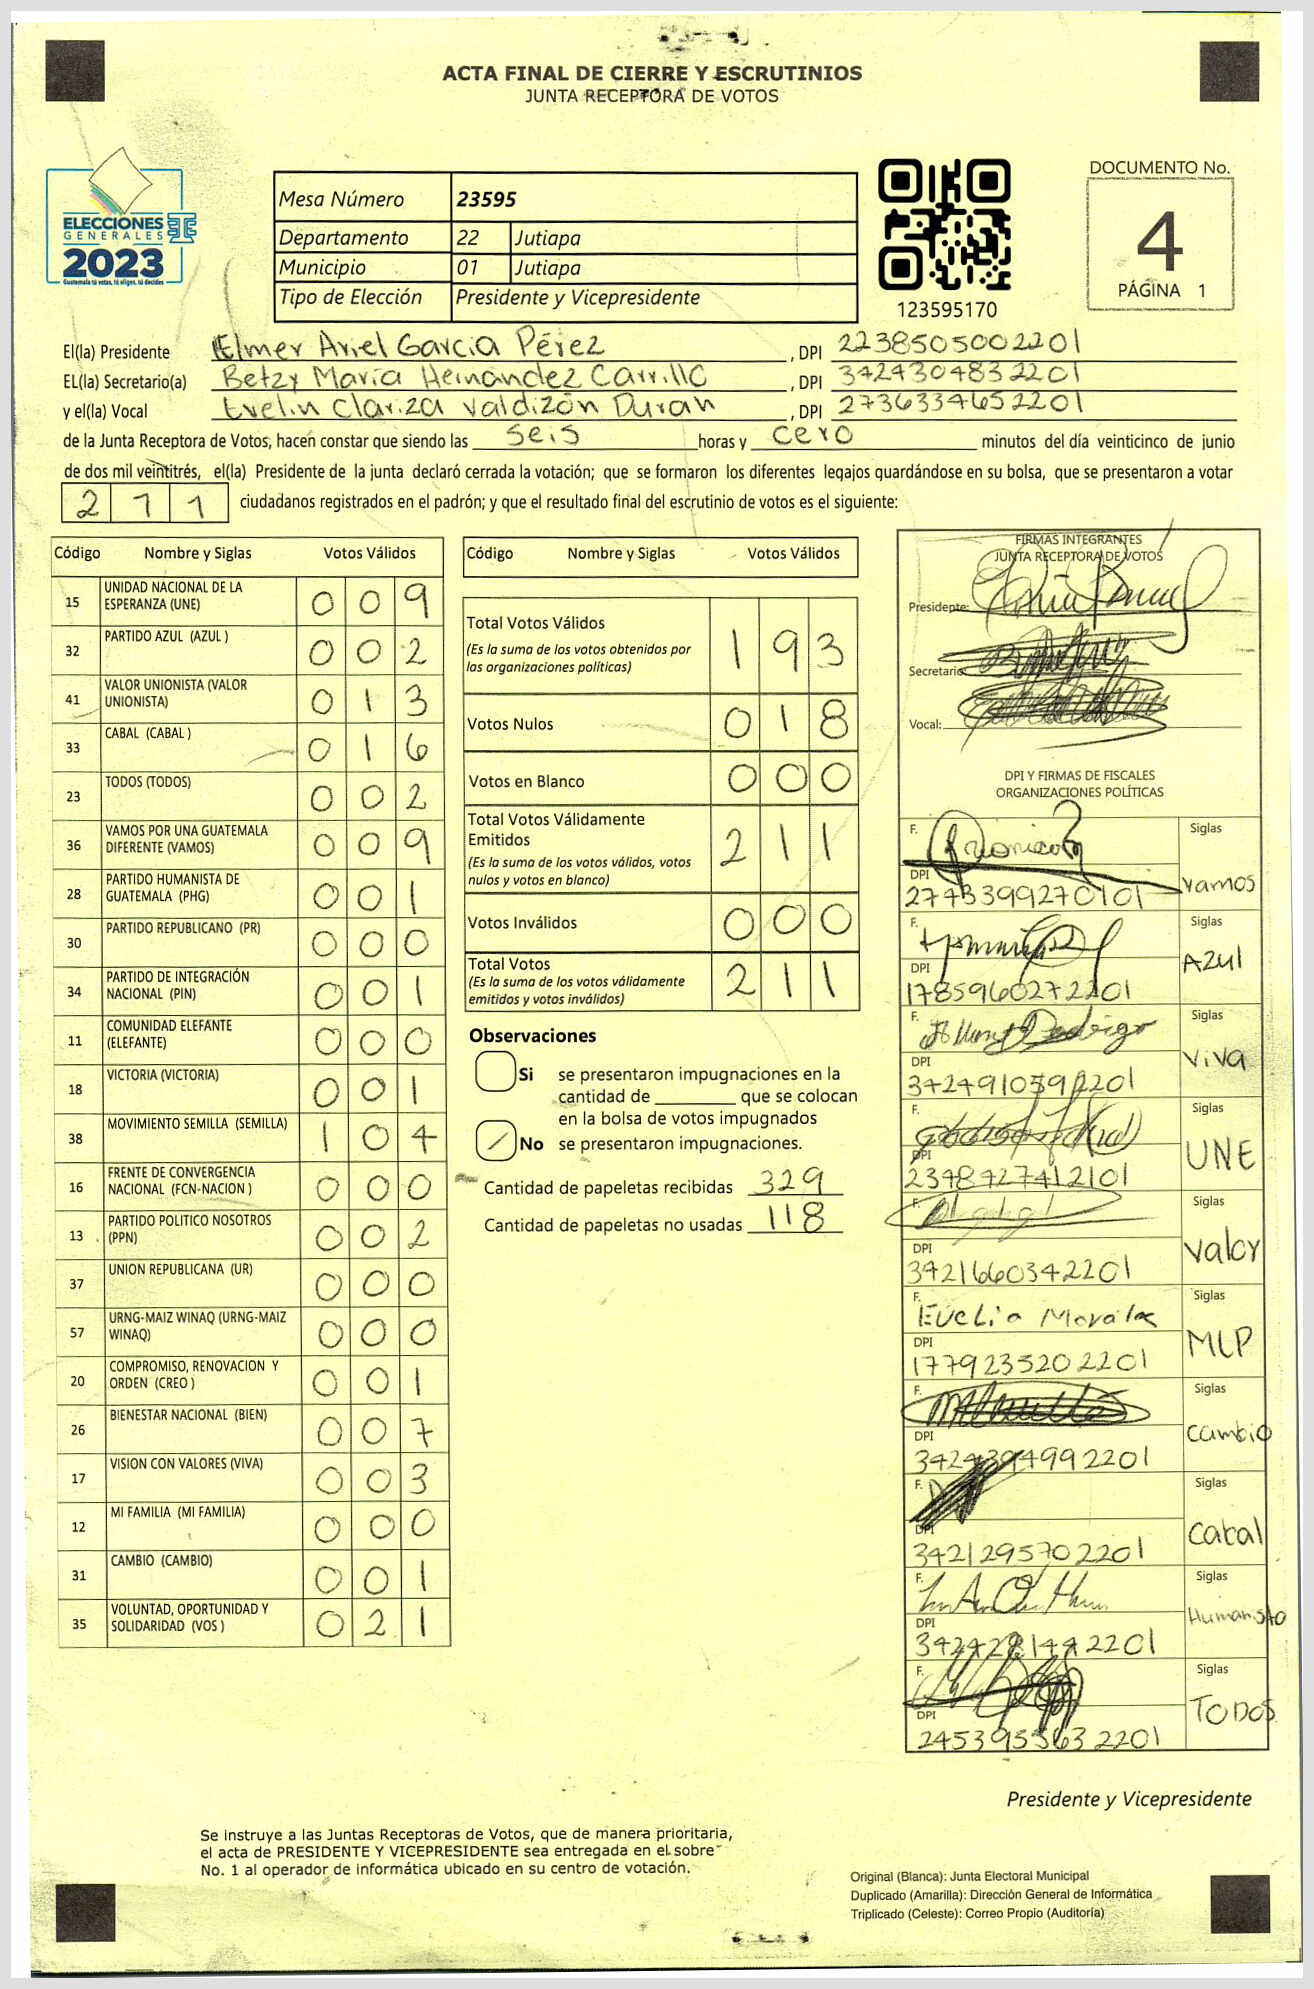 ACTA FINAL DE CIERRE Y ESCRUTINIOS
JUNTA RECEPTORA DE VOTOS
ELECCIONES
GENERALES
2023
Guatemala tú votas, tú eliges, tú decides
Mesa Número 23595
Departamento 22 Jutiapa
Municipio 01 Jutiapa
Tipo de Elección Presidente y Vicepresidente
123595170
DOCUMENTO No.
4
PÁGINA 1
El(la) Presidente Elmer Ariel García Pérez , DPI 2238505002201
EL(la) Secretario(a) Betzy María Hernández Carrillo , DPI 3424304832201
y el(la) Vocal Evelin Clariza Valdizón Duran , DPI 2736334652201
de la Junta Receptora de Votos, hacen constar que siendo las seis horas y cero minutos del día veinticinco de junio
de dos mil veintitrés, el(la) Presidente de la junta declaró cerrada la votación; que se formaron los diferentes legajos guardándose en su bolsa, que se presentaron a votar
211 ciudadanos registrados en el padrón; y que el resultado final del escrutinio de votos es el siguiente:
Código Nombre y Siglas Votos Válidos
15 UNIDAD NACIONAL DE LA ESPERANZA (UNE) 0 0 9
32 PARTIDO AZUL (AZUL ) 0 0 2
41 VALOR UNIONISTA (VALOR UNIONISTA) 0 1 3
33 CABAL (CABAL ) 0 1 6
23 TODOS (TODOS) 0 0 2
36 VAMOS POR UNA GUATEMALA DIFERENTE (VAMOS) 0 0 9
28 PARTIDO HUMANISTA DE GUATEMALA (PHG) 0 0 1
30 PARTIDO REPUBLICANO (PR) 0 0 0
34 PARTIDO DE INTEGRACIÓN NACIONAL (PIN) 0 0 1
11 COMUNIDAD ELEFANTE (ELEFANTE) 0 0 0
18 VICTORIA (VICTORIA) 0 0 1
38 MOVIMIENTO SEMILLA (SEMILLA) 1 0 4
16 FRENTE DE CONVERGENCIA NACIONAL (FCN-NACION ) 0 0 0
13 PARTIDO POLITICO NOSOTROS (PPN) 0 0 2
37 UNION REPUBLICANA (UR) 0 0 0
57 URNG-MAIZ WINAQ (URNG-MAIZ WINAQ) 0 0 0
20 COMPROMISO, RENOVACION Y ORDEN (CREO ) 0 0 1
26 BIENESTAR NACIONAL (BIEN) 0 0 7
17 VISION CON VALORES (VIVA) 0 0 3
12 MI FAMILIA (MI FAMILIA) 0 0 0
31 CAMBIO (CAMBIO) 0 0 1
35 VOLUNTAD, OPORTUNIDAD Y SOLIDARIDAD (VOS ) 0 2 1
Código Nombre y Siglas Votos Válidos
Total Votos Válidos 1 9 3
(Es la suma de los votos obtenidos por
las organizaciones políticas)
Votos Nulos 0 1 8
Votos en Blanco 0 0 0
Total Votos Válidamente
Emitidos 2 1 1
(Es la suma de los votos válidos, votos
nulos y votos en blanco)
Votos Inválidos 0 0 0
Total Votos 2 1 1
(Es la suma de los votos válidamente
emitidos y votos inválidos)
Observaciones
Si se presentaron impugnaciones en la
cantidad de ________ que se colocan
en la bolsa de votos impugnados
No se presentaron impugnaciones.
Cantidad de papeletas recibidas 329
Cantidad de papeletas no usadas 118
FIRMAS INTEGRANTES
JUNTA RECEPTORA DE VOTOS
Presidente:
Secretario:
Vocal:
DPI Y FIRMAS DE FISCALES
ORGANIZACIONES POLÍTICAS
F. Siglas
DPI 2743399270101 Vamos
F. Siglas
DPI 1785960272201 AZUL
F. Siglas
DPI VIVA
F. Siglas
DPI 2348427412101 UNE
F. Siglas
DPI 3421660342201 Valor
F. Evelia Morales Siglas
DPI 1779235202201 MLP
F. Siglas
DPI 3424394992201 Cambio
F. Siglas
DPI 3421295702201 Cabal
F. Siglas
DPI Humanista
F. Siglas
DPI TODOS
Presidente y Vicepresidente
Se instruye a las Juntas Receptoras de Votos, que de manera prioritaria,
el acta de PRESIDENTE Y VICEPRESIDENTE sea entregada en el sobre
No. 1 al operador de informática ubicado en su centro de votación.
Original (Blanca): Junta Electoral Municipal
Duplicado (Amarilla): Dirección General de Informática
Triplicado (Celeste): Correo Propio (Auditoría)